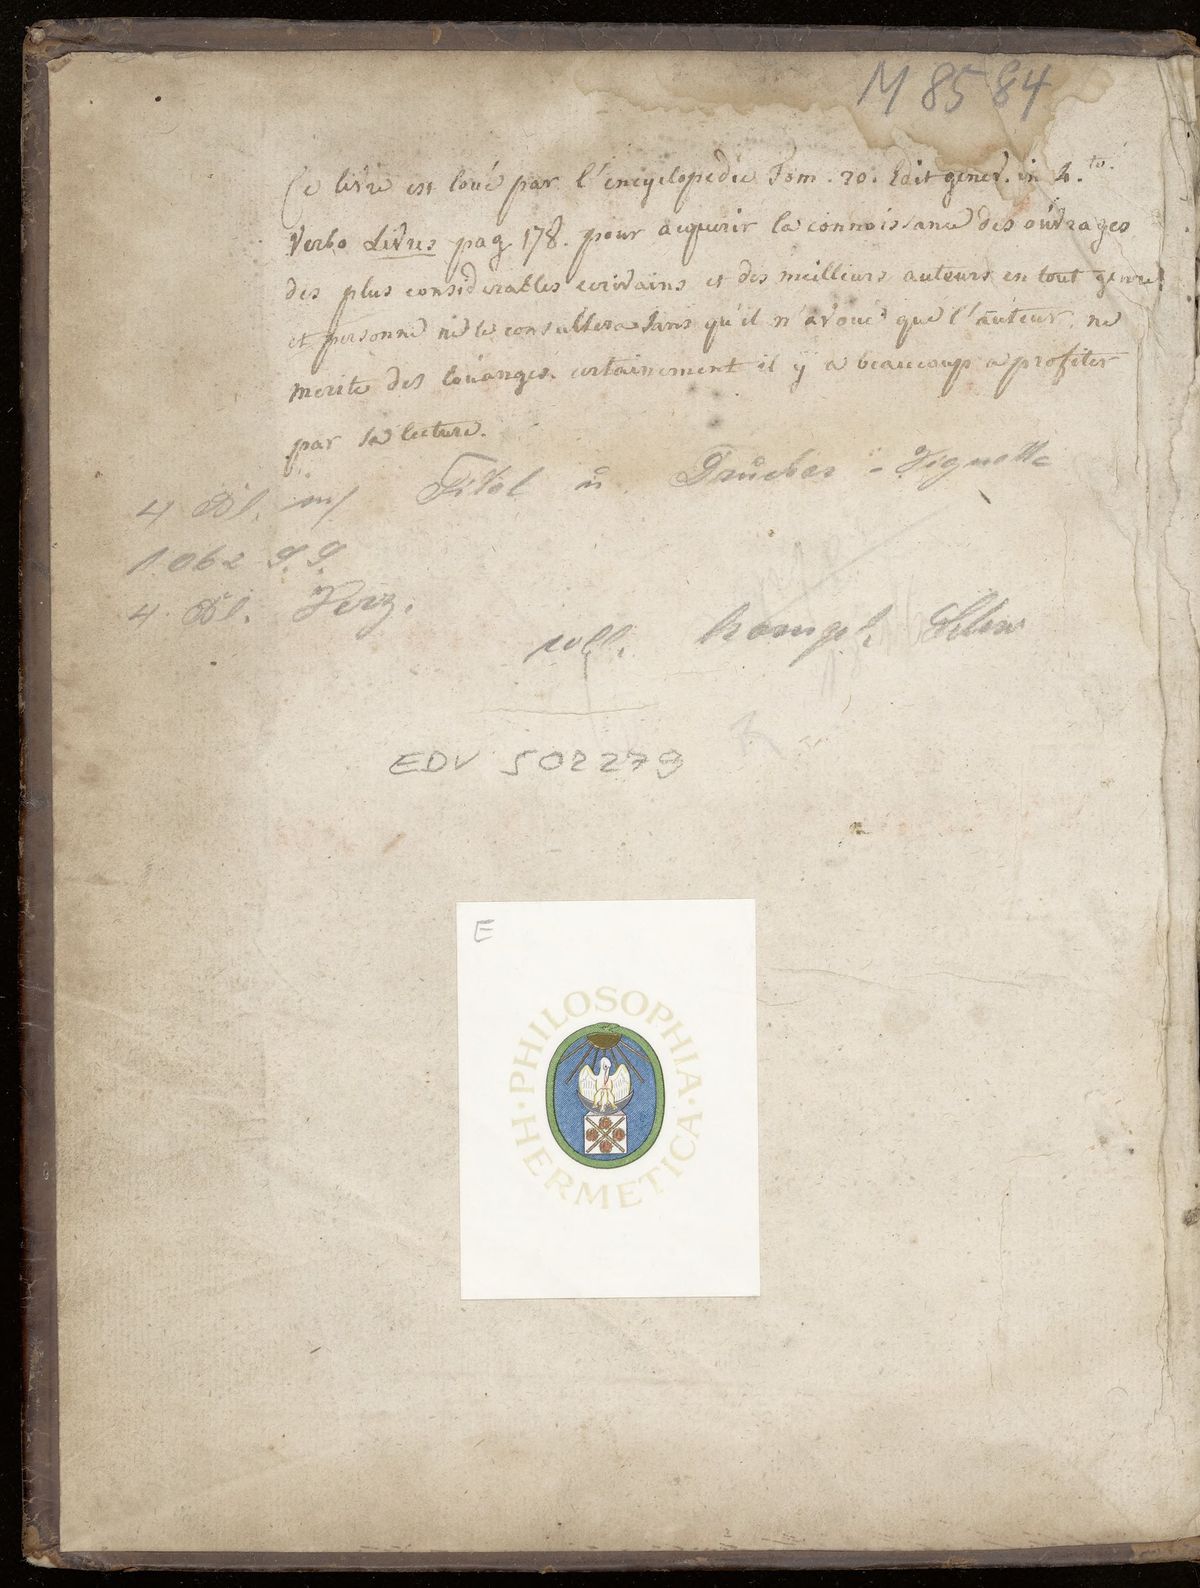 M 8584
Ce livre est loué par l'encyclopedie Tom. 20. Edit genev. in 4.to.
Verbo Livres pag 178. pour acquerir la connoissance des ouvrages
des plus considerables ecrivains et des meilleurs auteurs en tout genre
et personne ne le consultera sans qu'il n'avoue que l'auteur ne
merite des louanges. certainement il y a beaucoup a profiter
par sa lecture.
4 Bl. mit Titel u. Drucker-Vignette
1062 S.S.
4 Bl. Verz.
voll. kompl. Selten
EDV 502279
E
PHILOSOPHIA · HERMETICA ·